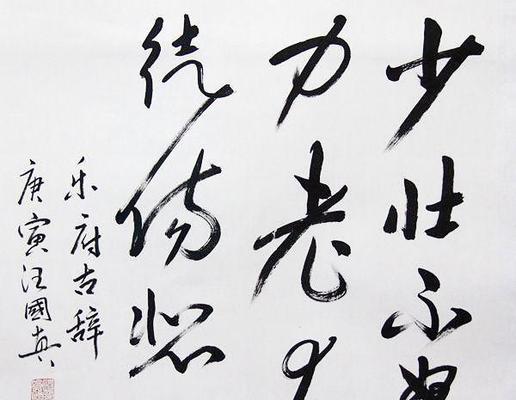 少壮不努
力老
徒傷悲
乐府古辞
庚寅汪國真